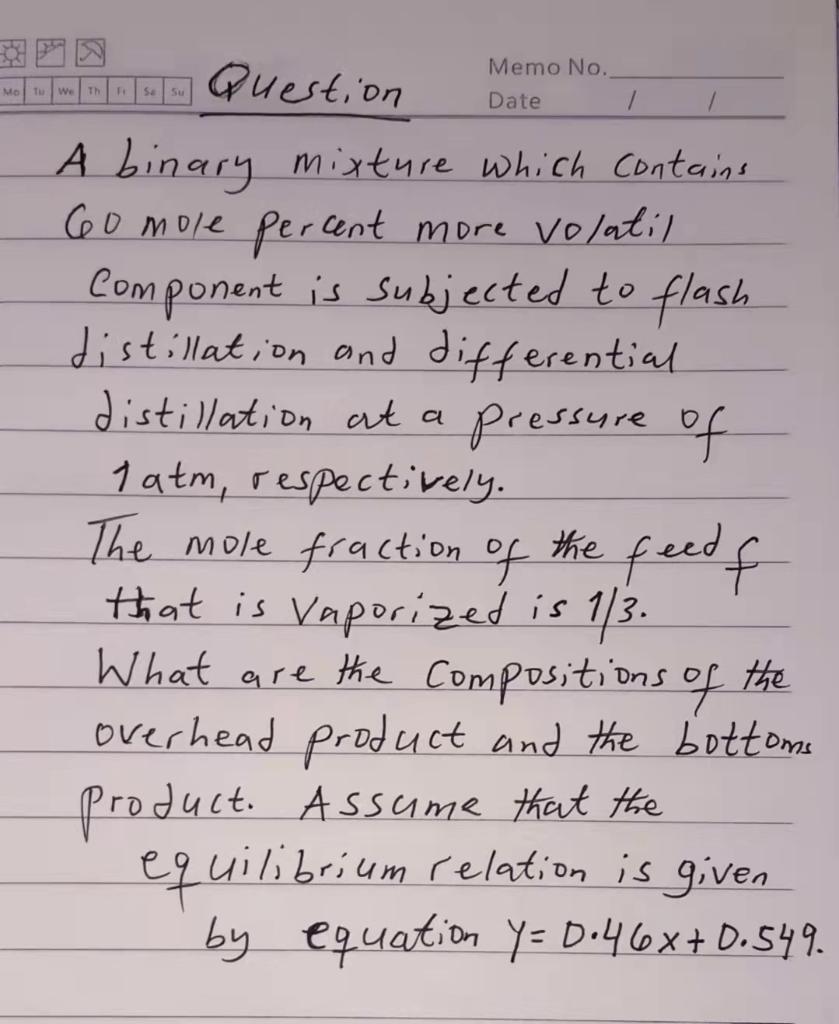 Memo No.
Mo Tu We Th Fr Sa Su
Question
Date / /
A binary mixture which contains
60 mole percent more volatil
component is subjected to flash
distillation and differential
distillation at a pressure of
1 atm, respectively.
The mole fraction of the feed f
that is vaporized is 1/3.
What are the compositions of the
overhead product and the bottoms
product. Assume that the
equilibrium relation is given
by equation y= 0.46x+0.549.